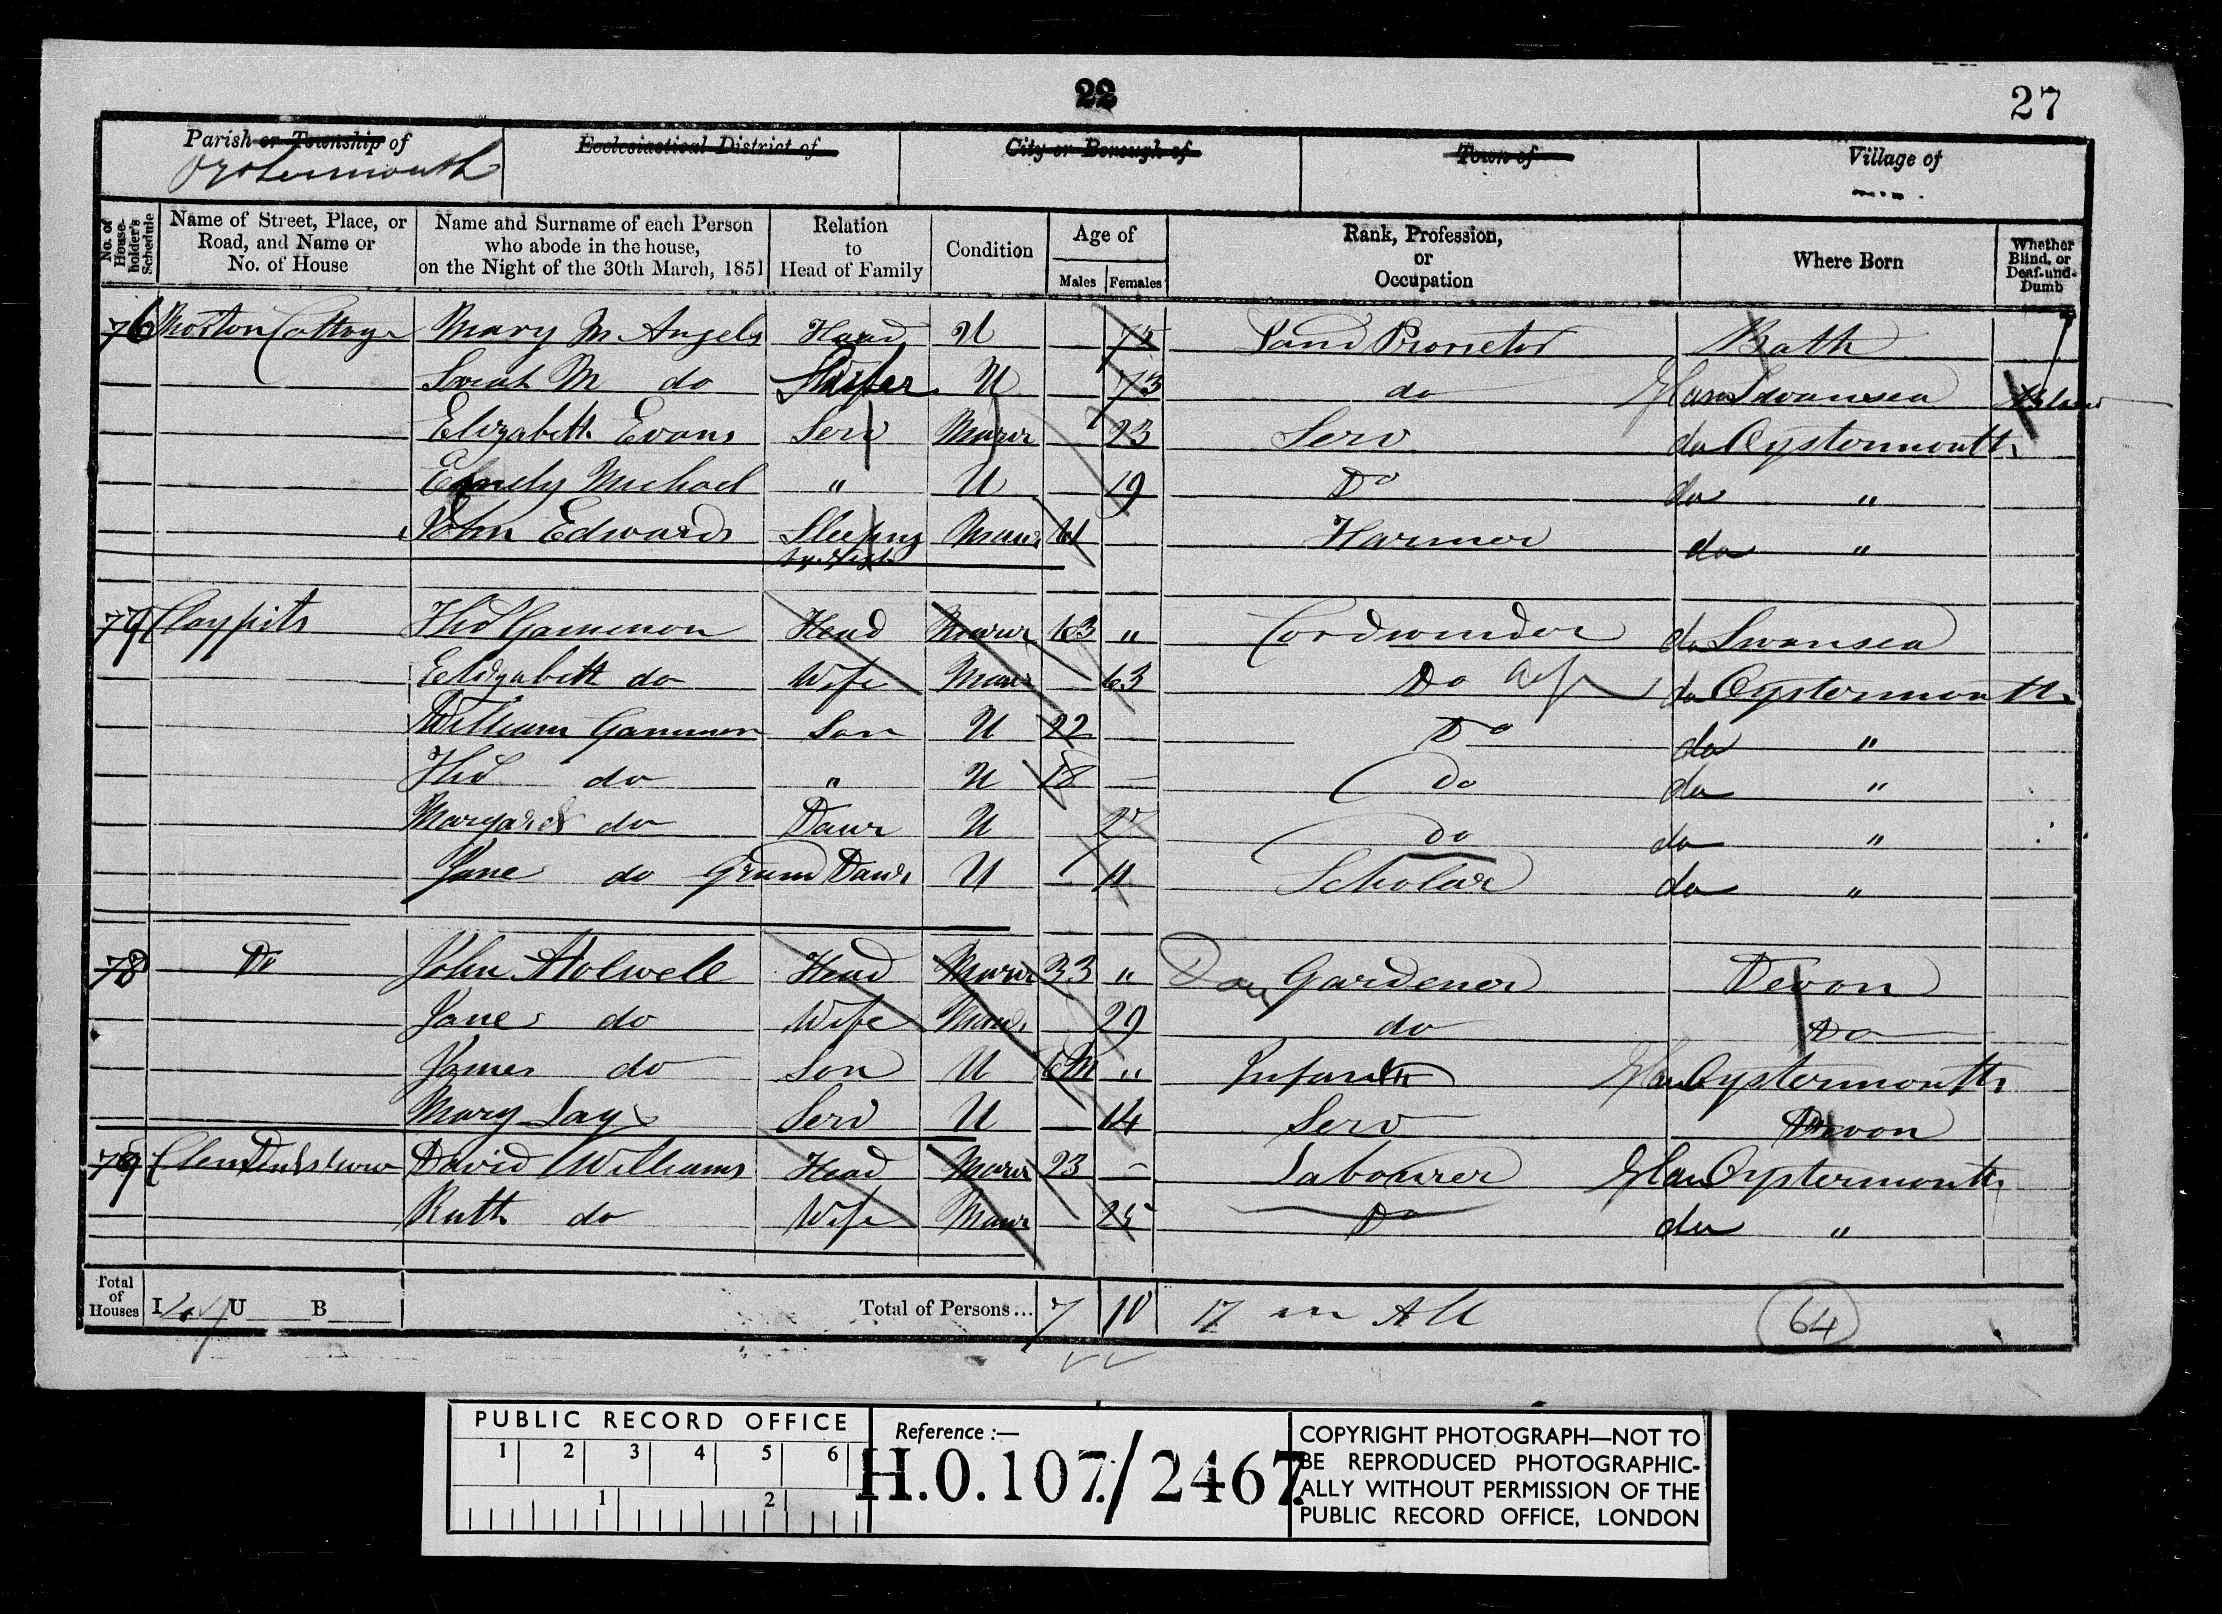 22
27
Parish or Township of
Oystermouth
Ecclesiastical District of
City or Borough of
Town of
Village of
No. of House-holder's Schedule
Name of Street, Place, or Road, and Name or No. of House
Name and Surname of each Person who abode in the house, on the Night of the 30th March, 1851
Relation to Head of Family
Condition
Age of
Males
Females
Rank, Profession, or Occupation
Where Born
Whether Blind, or Deaf-and-Dumb
76 Norton Cottage Mary M Angels Head U 75 Land Proprietor Bath
Sarah M do Sister U 73 do Glam Swansea Blind
Elizabeth Evans Serv Marr 23 Serv do Oystermouth
Emily Michael " U 19 Do do "
John Edwards Sleeping Marr 61 Farmer do "
77 Claypits Thos Gammon Head Marr 63 " Cordwinder do Swansea
Elizabeth do Wife Marr 63 Do do Oystermouth
William Gammon Son U 22 Do do "
Thos do " U 18 Do do "
Margaret do Daur U Do do "
Jane do Grand Daur U 11 Scholar do "
78 Do John Holwell Head Marr 33 " Gardener Devon
Jane do Wife Marr 29 do Do
James do Son U 6M " Infant Glam Oystermouth
Mary Lay Serv U 14 Serv Devon
79 David Williams Head Marr 23 Labourer Glam Oystermouth
Ruth do Wife Marr 25 Do do "
Total of Houses I U B Total of Persons... 7 10 17 in All 64
PUBLIC RECORD OFFICE
1 2 3 4 5 6
1 2
Reference :—
H.O.107./2467.
COPYRIGHT PHOTOGRAPH—NOT TO
BE REPRODUCED PHOTOGRAPHIC-
ALLY WITHOUT PERMISSION OF THE
PUBLIC RECORD OFFICE, LONDON